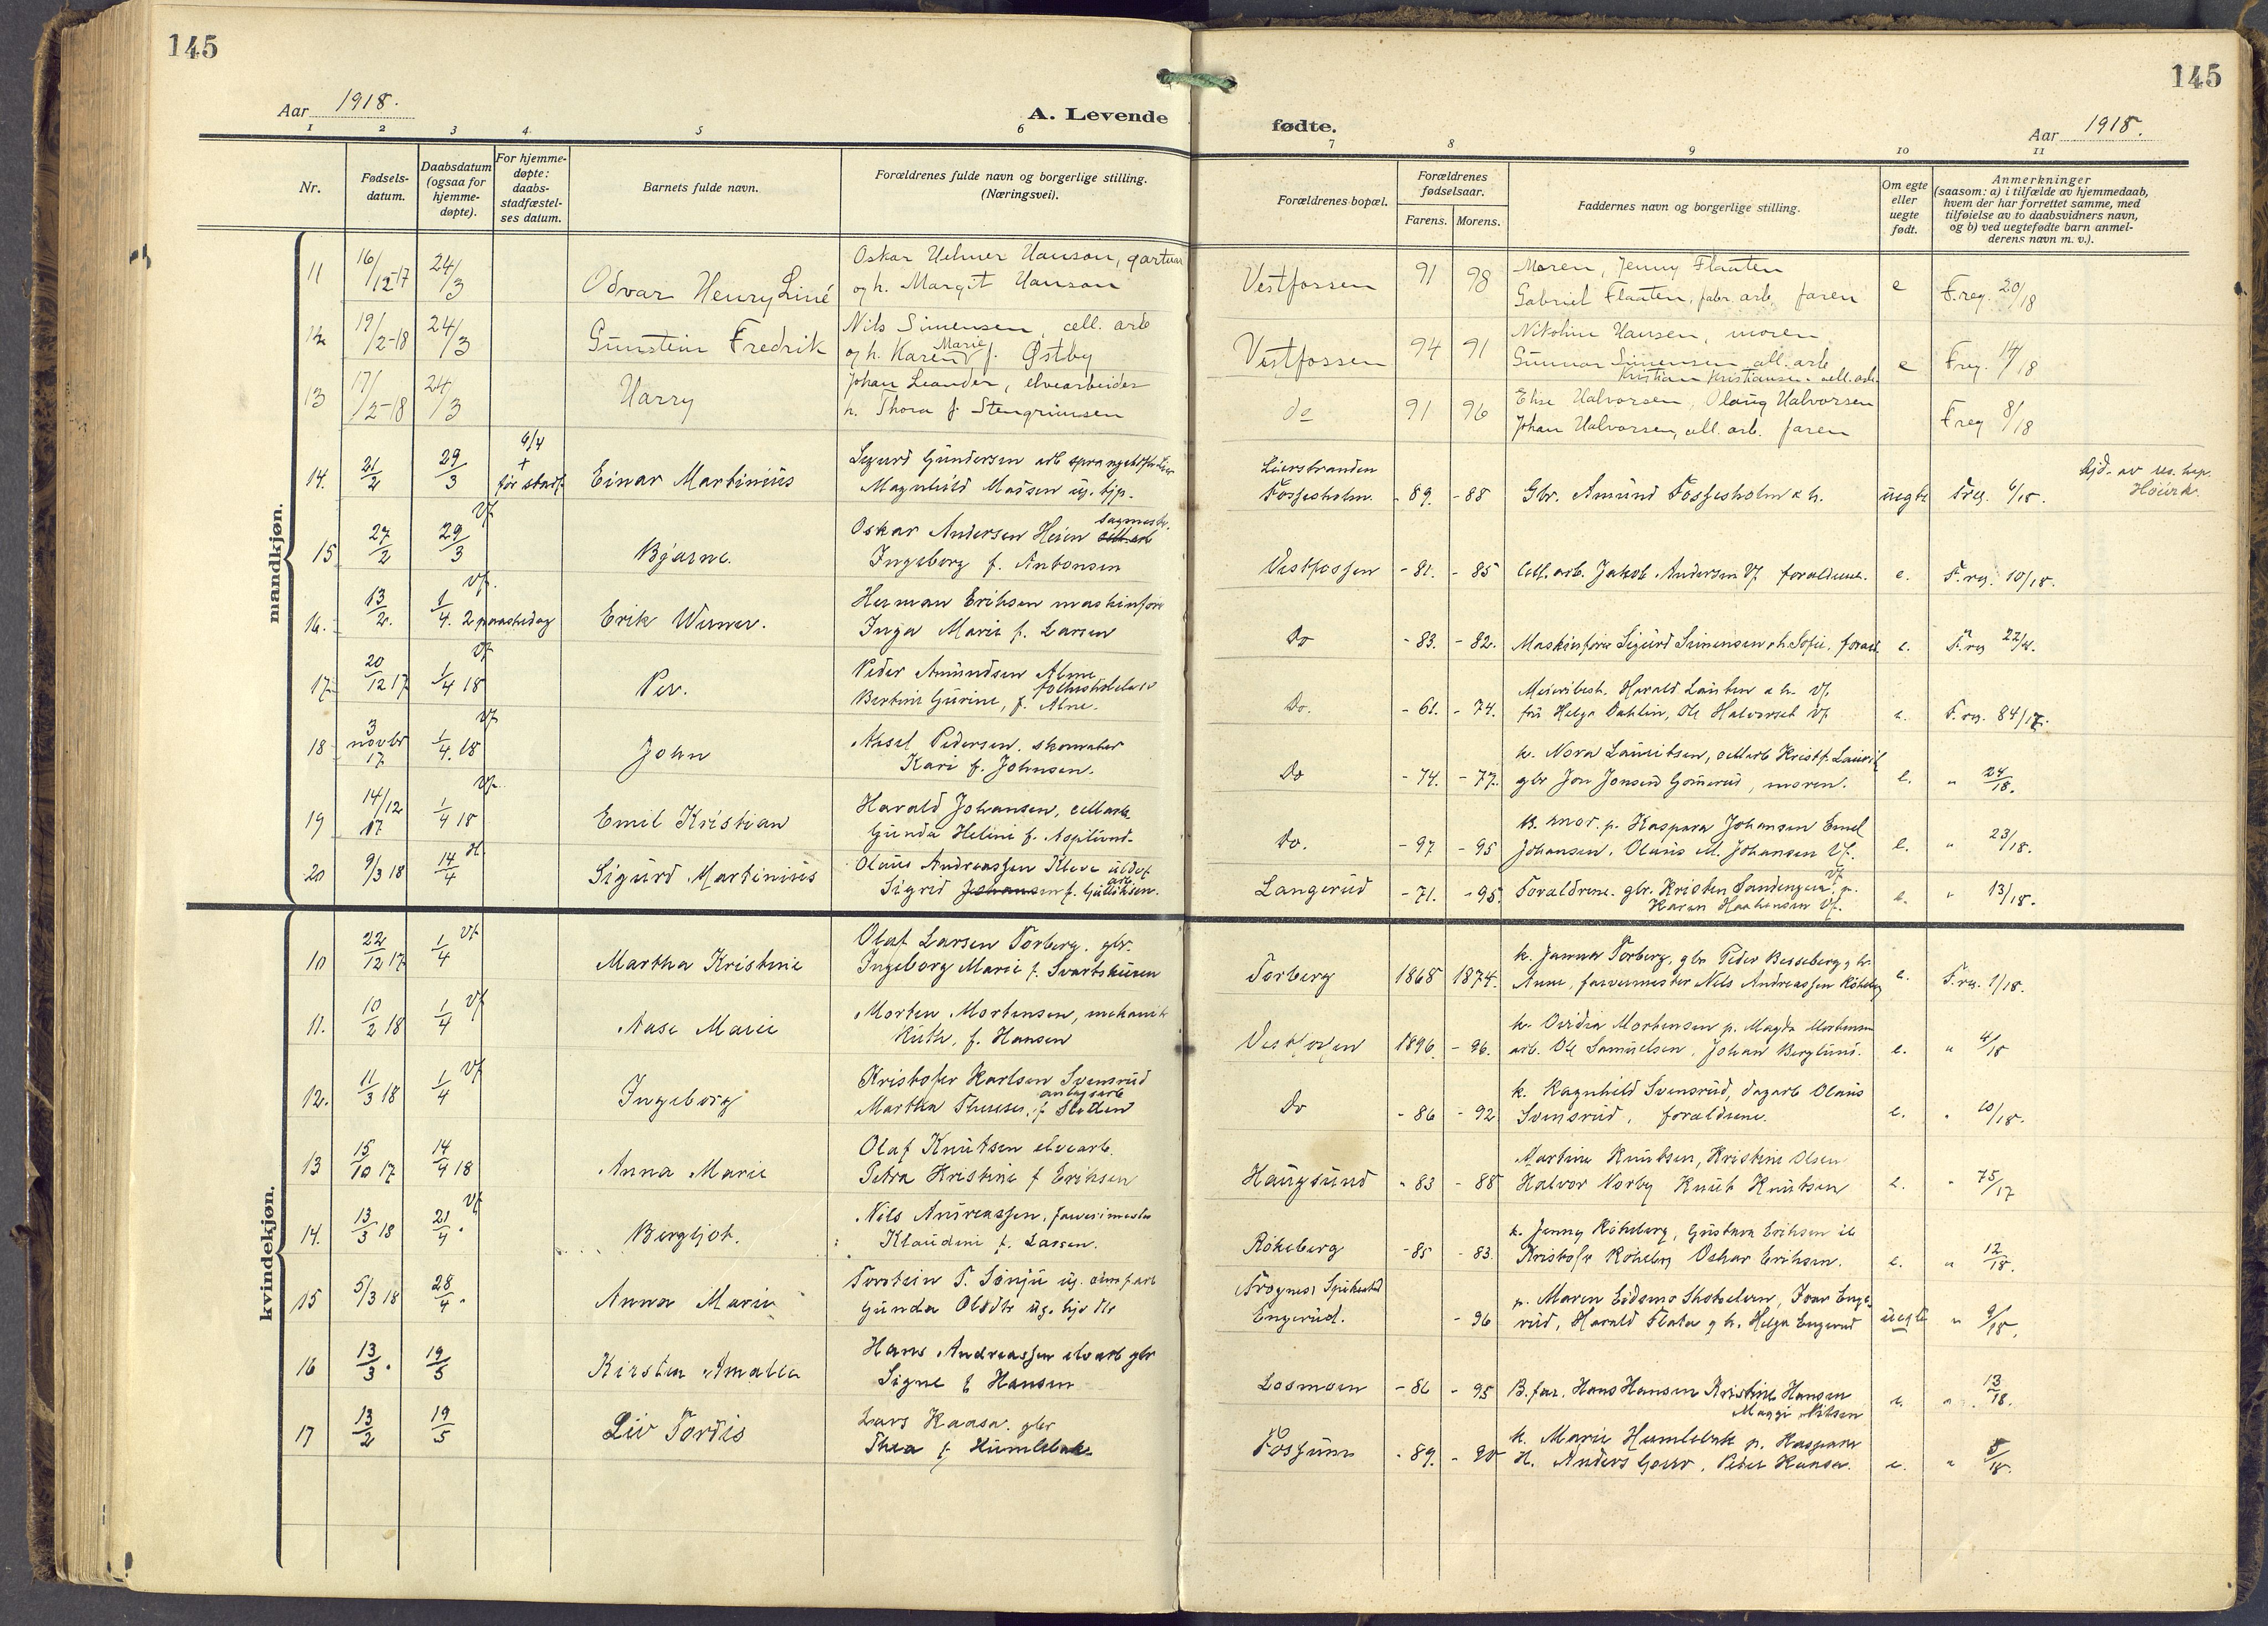 145
145
Aar 1918.
A. Levende fødte.
Aar 1918.
1 2 3 4 5 6 7 8 9 10 11
Nr.
Fødsels-
datum.
Daabsdatum
(ogsaa for
hjemme-
døpte).
For hjemme-
døpte:
daabs-
stadfæstel-
ses datum.
Barnets fulde navn.
Forældrenes fulde navn og borgerlige stilling.
(Næringsvei).
Forældrenes bopæl.
Forældrenes
fødselsaar.
Farens. Morens.
Faddernes navn og borgerlige stilling.
Om egte
eller
uegte
født.
Anmerkninger
(saasom: a) i tilfælde av hjemmedaab,
hvem der har forrettet samme, med
tilføielse av to daabsvidners navn,
og b) ved uegtefødte barn anmel-
derens navn m. v.).
mandkjøn.
11 16/12-17 24/3 Odvar Henry Liné
Oskar Hansson,
og h. Margit Hansson
Vestfossen 91 98
Moren, Jenny Flaaten
Gabriel Flaaten, fabr. arb, faren
e F.reg. 20/18
12 19/2-18 24/3 Gunstein Fredrik
Nils Simensen, cell. arb
og h. Karen Marie f. Østby
Vestfossen 94 91
Nikoline Hansen, moren
Gunnar Simensen cell. arb
Kristian Kristiansen cell. arb.
e F.reg. 14/18
13 17/2-18 24/3 Harry
Johan Leander, elvearbeider
h. Thora f. Stengrimsen
do 91 96
Elise Halvorsen, Olaug Halvorsen
Johan Halvorsen, cell. arb. faren
F reg 8/18
14. 21/2 29/3 6/4 + før stadf. Einar Martinius
Sigurd Gundersen arb
Magnhild Madsen ug. tjp.
Lierstranden
Fossesholm. -89. -88
Gbr. Amund Fossesholm & h.
uegte Freg. 6/18.
hjd. av res. kap.
15 27/2 29/3 Vf Bjarne.
Oskar Andersen Heien sagmestr.
Ingeborg f. Antonsen
Vestfossen -81. -85
Cell. arb. Jakob Andersen Vf forældrene.
e. F. reg. 10/18.
16. 13/2. 1/4. 2 paaskedag Vf. Erik Werner.
Herman Eriksen maskinfører
Inga Marie f. Larsen
Do -83. -82.
Maskinfører Sigurd Simensen & h. Sofie, foræld.
e. F. reg 22/18.
17. 20/12 17 1/4 18 Vf Per.
Peder Amundsen Alme
Bertine Gurine, f. Alne.
Do. -61. -74.
Meieribest. Harald Lauten & h. Vf.
fru Helga Dahlin, Ole Halvorsen Vf
e. F. reg. 84/17.
18 3 novbr 17 1/4. 18 Vf. John
Aksel Pedersen. skomaker
Kari f. Johnsen.
Do -74. -77.
k. Nora Lauritsen, cellarb Kristf. Laurit
gbr Jon Jonsen Gomerud, moren.
e. " 24/18.
19 14/12 17 1/4 18 Vf. Emil Kristian
Harald Johansen, cellarb
Gunda Heline f. Asplund.
Do. -97 -95
B. mor. p. Kaspara Johansen Emil
Johansen. Olaus M. Johansen Vf.
e. " 23/18.
20 9/3 18 14/4 H. Sigurd Martinius
Olaus Andreassen Kleve
Sigrid f. Gulliksen.
Langerud -71. -95
Forældrene. gbr. Kristen Sandengen p.
Karen Haakensen Vf.
e. " 13/18.
kvindekjøn.
10 22/12 17 1/4 Vf Martha Kristine
Olaf Larsen Torberg. gbr.
Ingeborg Marie f. Svartskuren
Torberg 1868 1874.
k. Janna Torberg, gbr Peder Besseberg & h.
Anne, farvermester Nils Andreassen Røkeberg
e. F. reg. 1/18.
11. 10/2 18 1/4 Vf Aase Marie
Morten Mortensen, mekanik
Ruth, f. Hansen
Vestfossen 1896. -96.
k. Ovidia Mortensen p. Magda Mortensen
arb. Ole Samuelsen, Johan Berglund.
e. " 4/18
12. 11/3 18 1/4 Vf Ingeborg
Kristofer Karlsen Svensrud
anlægsarb
Martha Therese, f Slotten
Do -86 -92
k. Ragnhild Svensrud, dagarb Olaus
Svensrud, forældrene.
e. " 10/18.
13 15/10 17 14/4 18 Anna Marie
Olaf Knutsen elvearb.
Petra Kristine f Eriksen
Haugsund -83 -88
Martine Knutsen, Kristine Olsen
Halvor Norby Knut Knutsen
e. " 75/17
14. 13/3 18 21/4. Vf Bergljot.
Nils Andreassen, farverimester
Klaudine f. Larsen.
Røkeberg -85 -83.
k. Jenny Røkeberg, Gustava Eriksen
Kristofer Røkeberg Oskar Eriksen.
e. " 12/18.
15 5/3 18 28/4. Anna Marie
Torstein T. Sønju ug.
Gunda Olsdtr ug. hjv.
Frogner Spikkestad
Engerud. -96
p. Maren Eidsmo Skotselven, Ivar Enge-
rud, Harald Flata & h. Helga Engerud
uegte " 9/18.
16 13/3. 19/5 Kirsten Amalia
Hans Andreassen elvarb gbr
Signe f Hansen
Losmoen -86 -95
B. far. Hans Hansen Kristine Hansen
Maggi Nilsen
e. " 13/18.
17 13/2 19/5 Liv Tordis
Lars Kaasa. gbr
Thea f. Humlebek
Fossum -89. -90
k. Marie Humlebek p. Kaspara
H. Anders Peder Kaasa.
e. " 8/18.